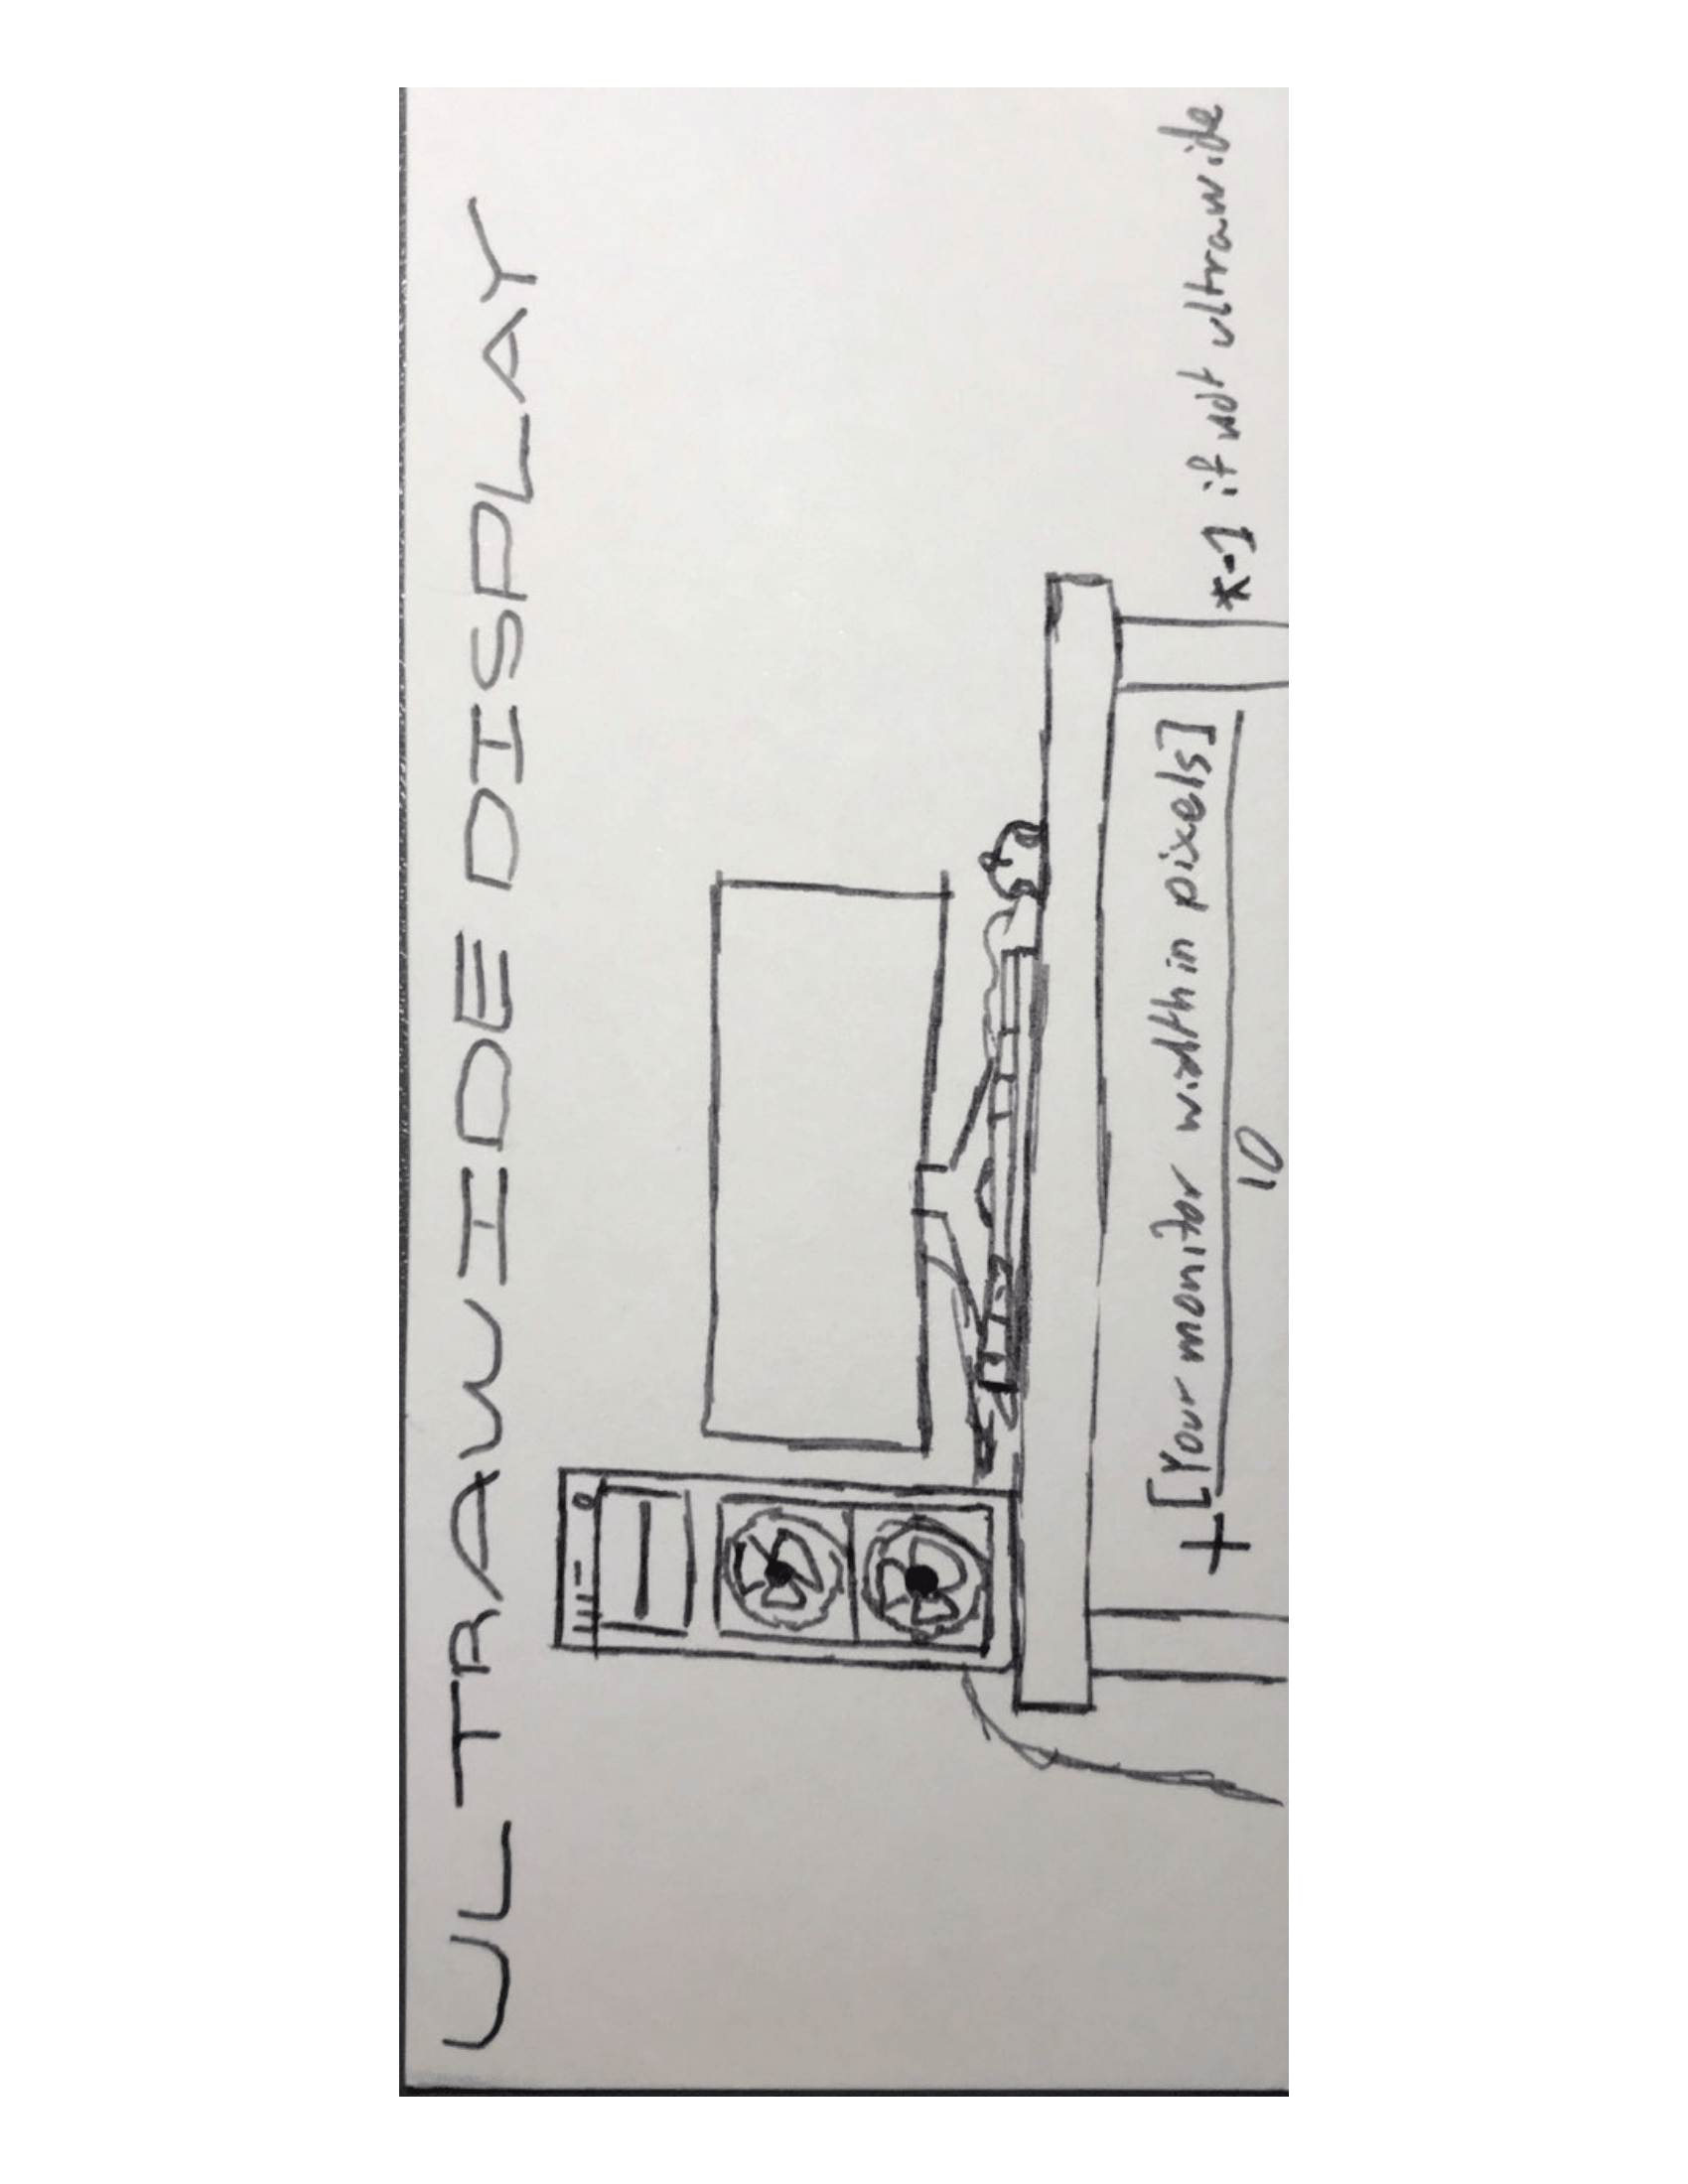 ULTRAWIDE DISPLAY
+ [Your monitor width in pixels]
10
*-1 if not ultrawide